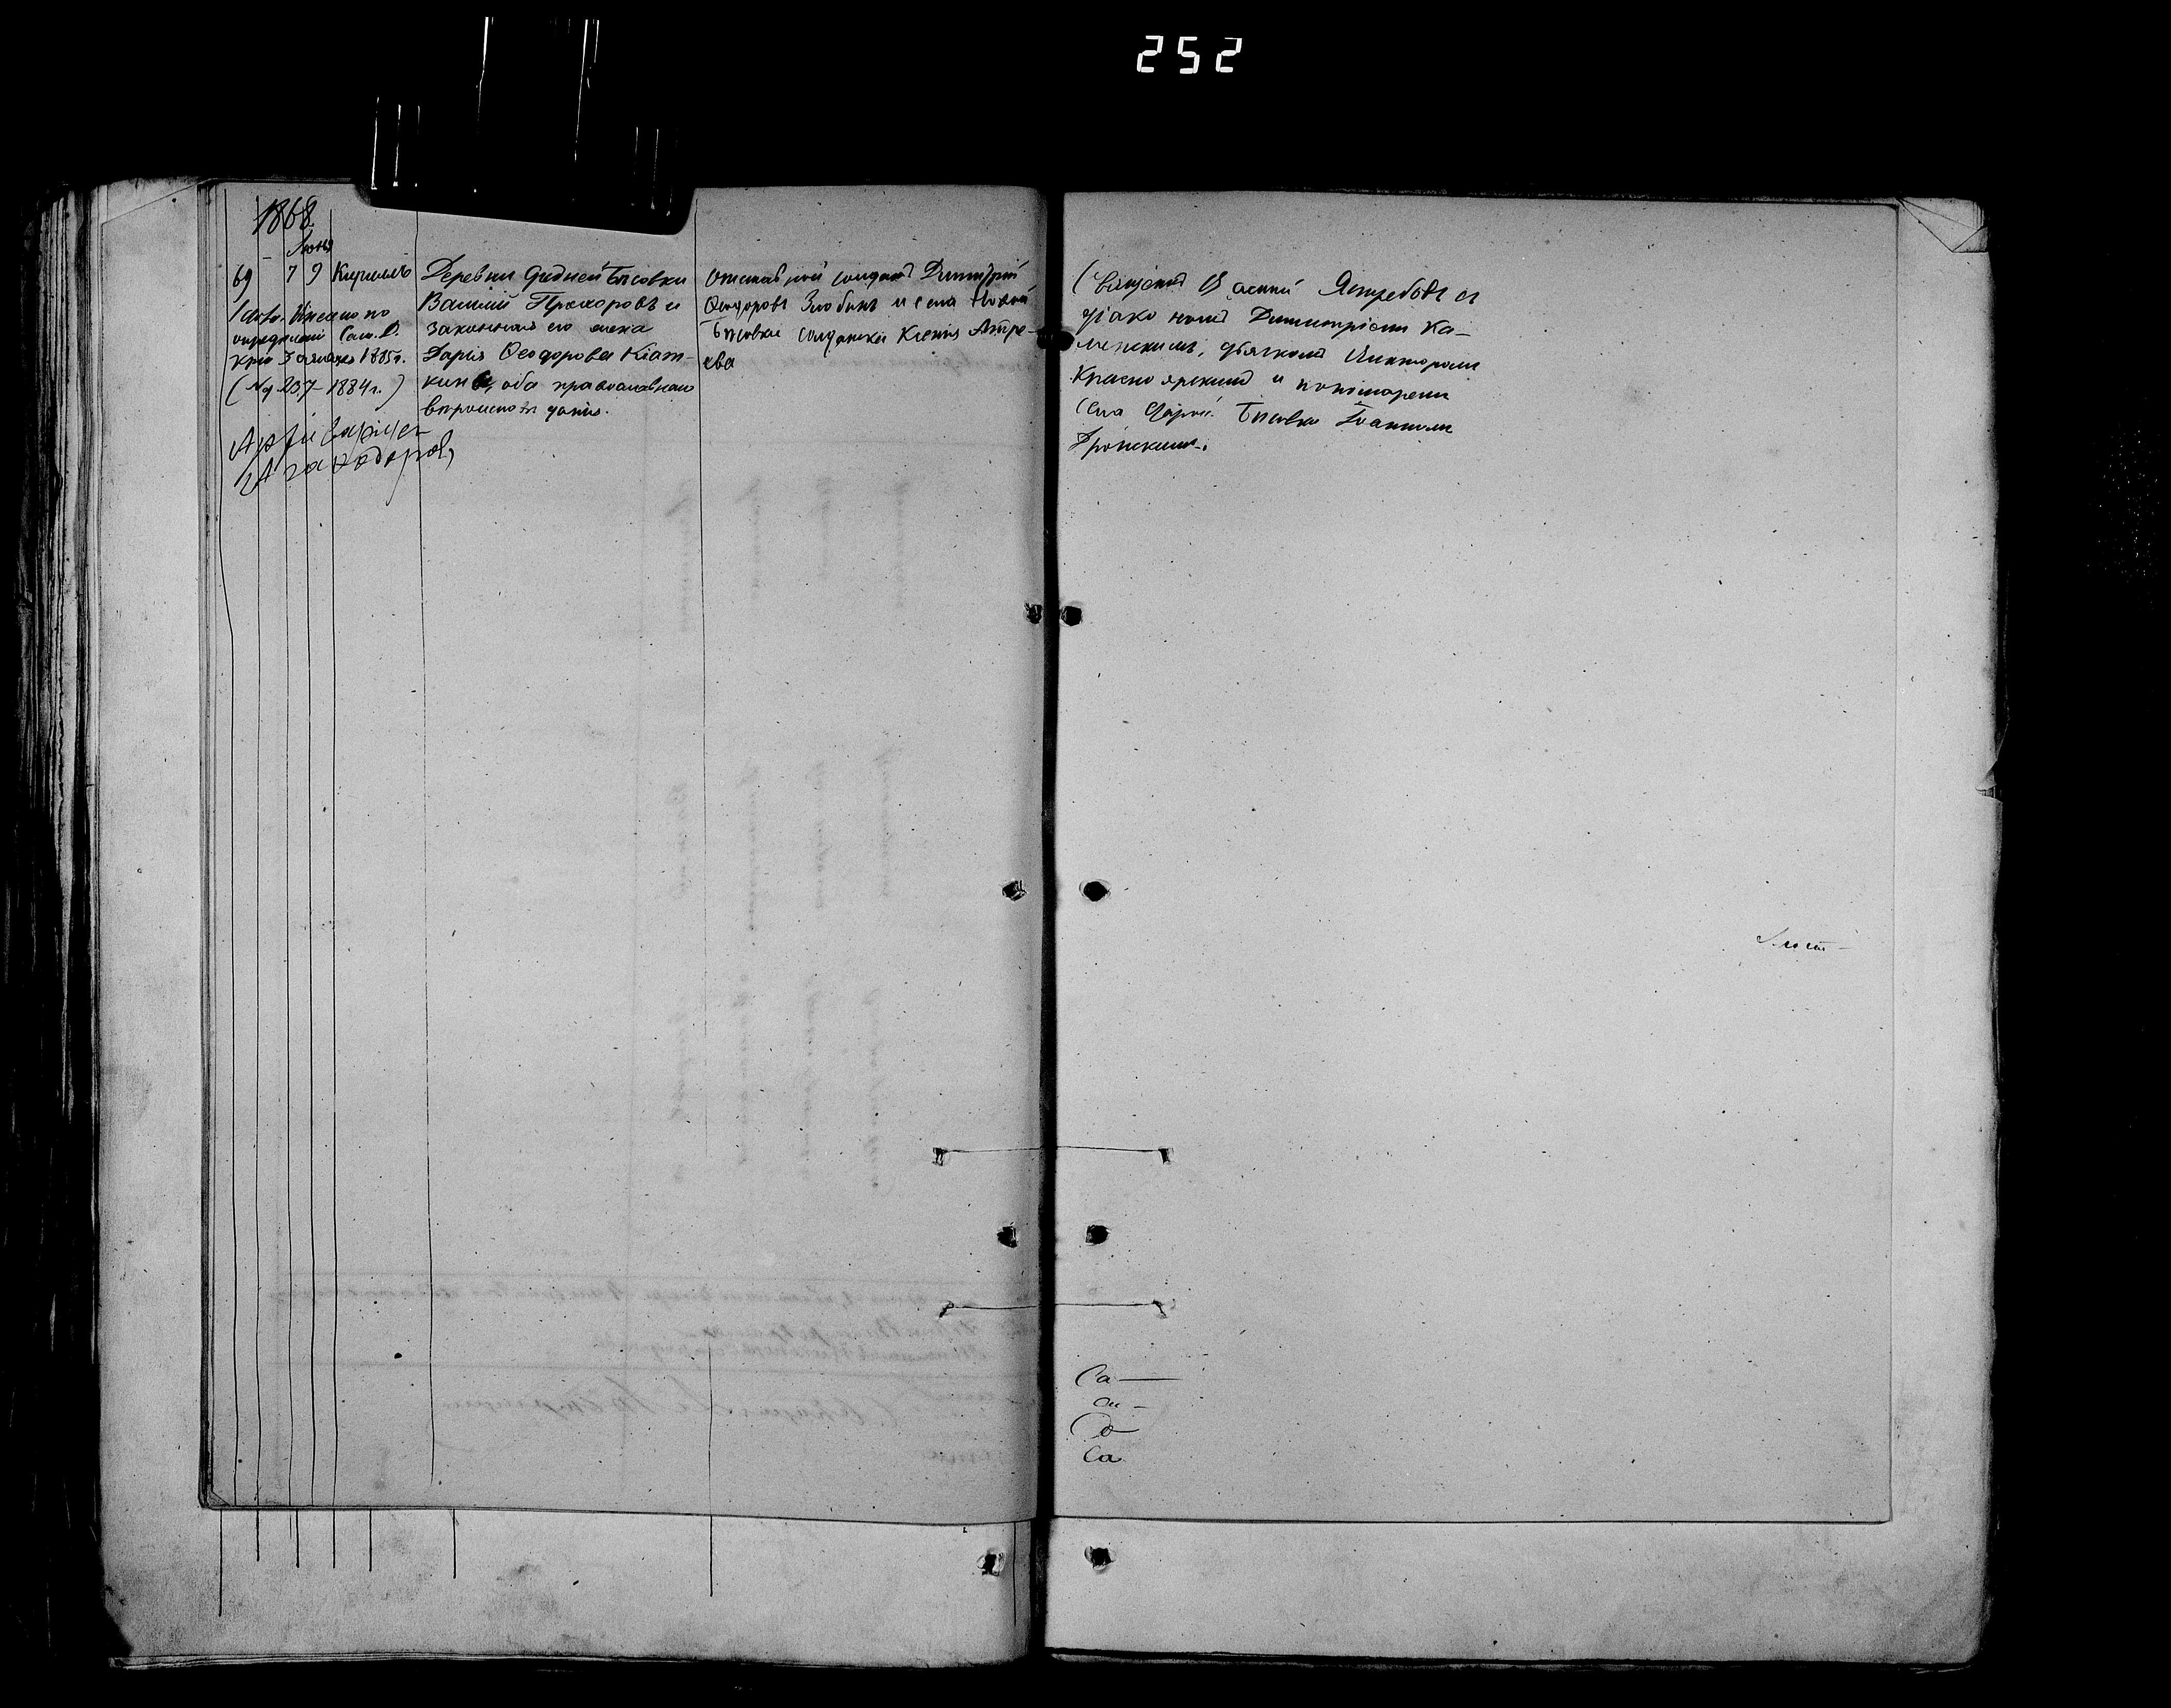 252
1868
Іюня
69 7 9 Кириллъ
Вписано по
опредѣленію Сам. Д.
1885 г.
(№ 237 1884 г.)
Архиваріусъ
Деревни Средней Бысовки
Василій Прохоровъ и
законная его жена
Дарія Ѳеодорова
кины, оба православнаго
вѣроисповѣданія.
Отставной солдатъ Димитрій
Ѳеодоровъ Злобинъ и села Новой
Бысовки солдатка Ксенія Андре-
ева
Священникъ Ястребовъ съ
діакономъ Димитріемъ Ка-
менскимъ, дьячкомъ Викторомъ
Красноярскимъ и пономаремъ
села Старой Бысовки Іоанномъ
Троицкимъ.
Са
Со
Са